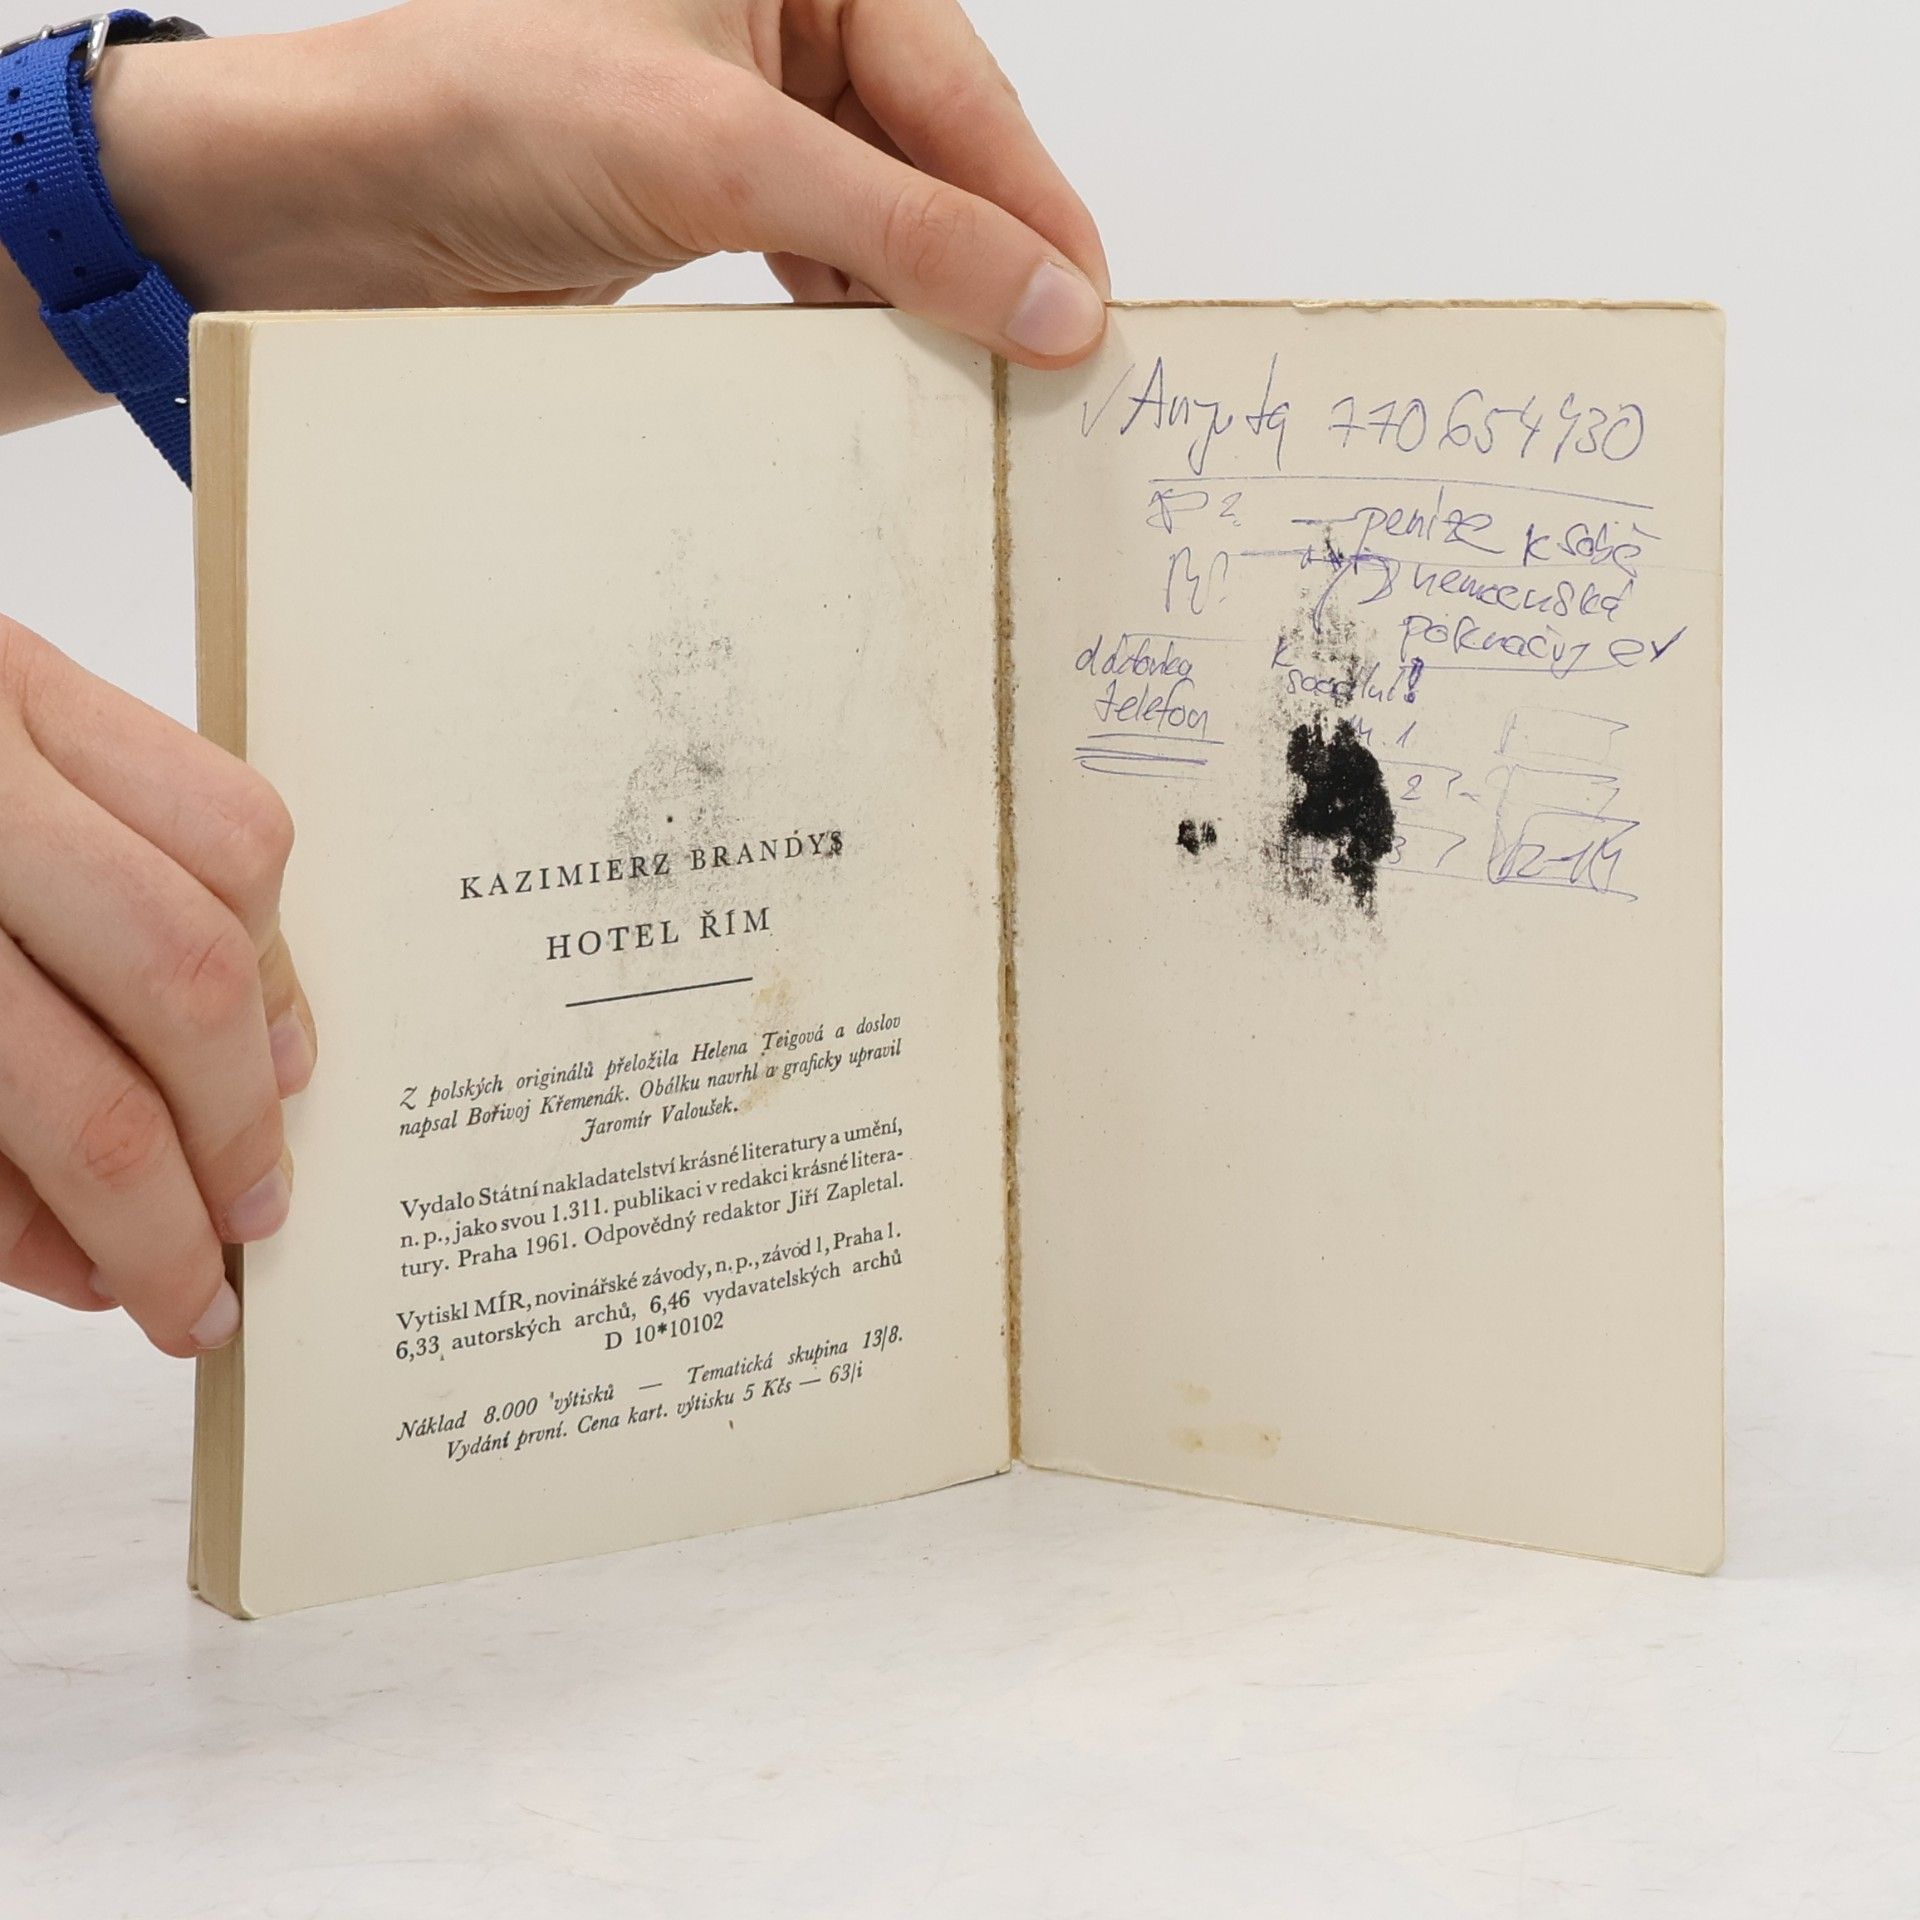 KAZIMIERZ BRANDYS
HOTEL ŘÍM
Z polských originálů přeložila Helena Teigová a doslov
napsal Bořivoj Křemenák. Obálku navrhl a graficky upravil
Jaromír Valoušek.
Vydalo Státní nakladatelství krásné literatury a umění,
n. p., jako svou 1.311. publikaci v redakci krásné litera-
tury. Praha 1961. Odpovědný redaktor Jiří Zapletal.
Vytiskl MÍR, novinářské závody, n. p., závod 1, Praha 1.
6,33 autorských archů, 6,46 vydavatelských archů
D 10*10102
Náklad 8.000 výtisků — Tematická skupina 13/8.
Vydání první. Cena kart. výtisku 5 Kčs — 63/i
770 654 930
peníze k sobě
nemcenská
telefon
1
2
3